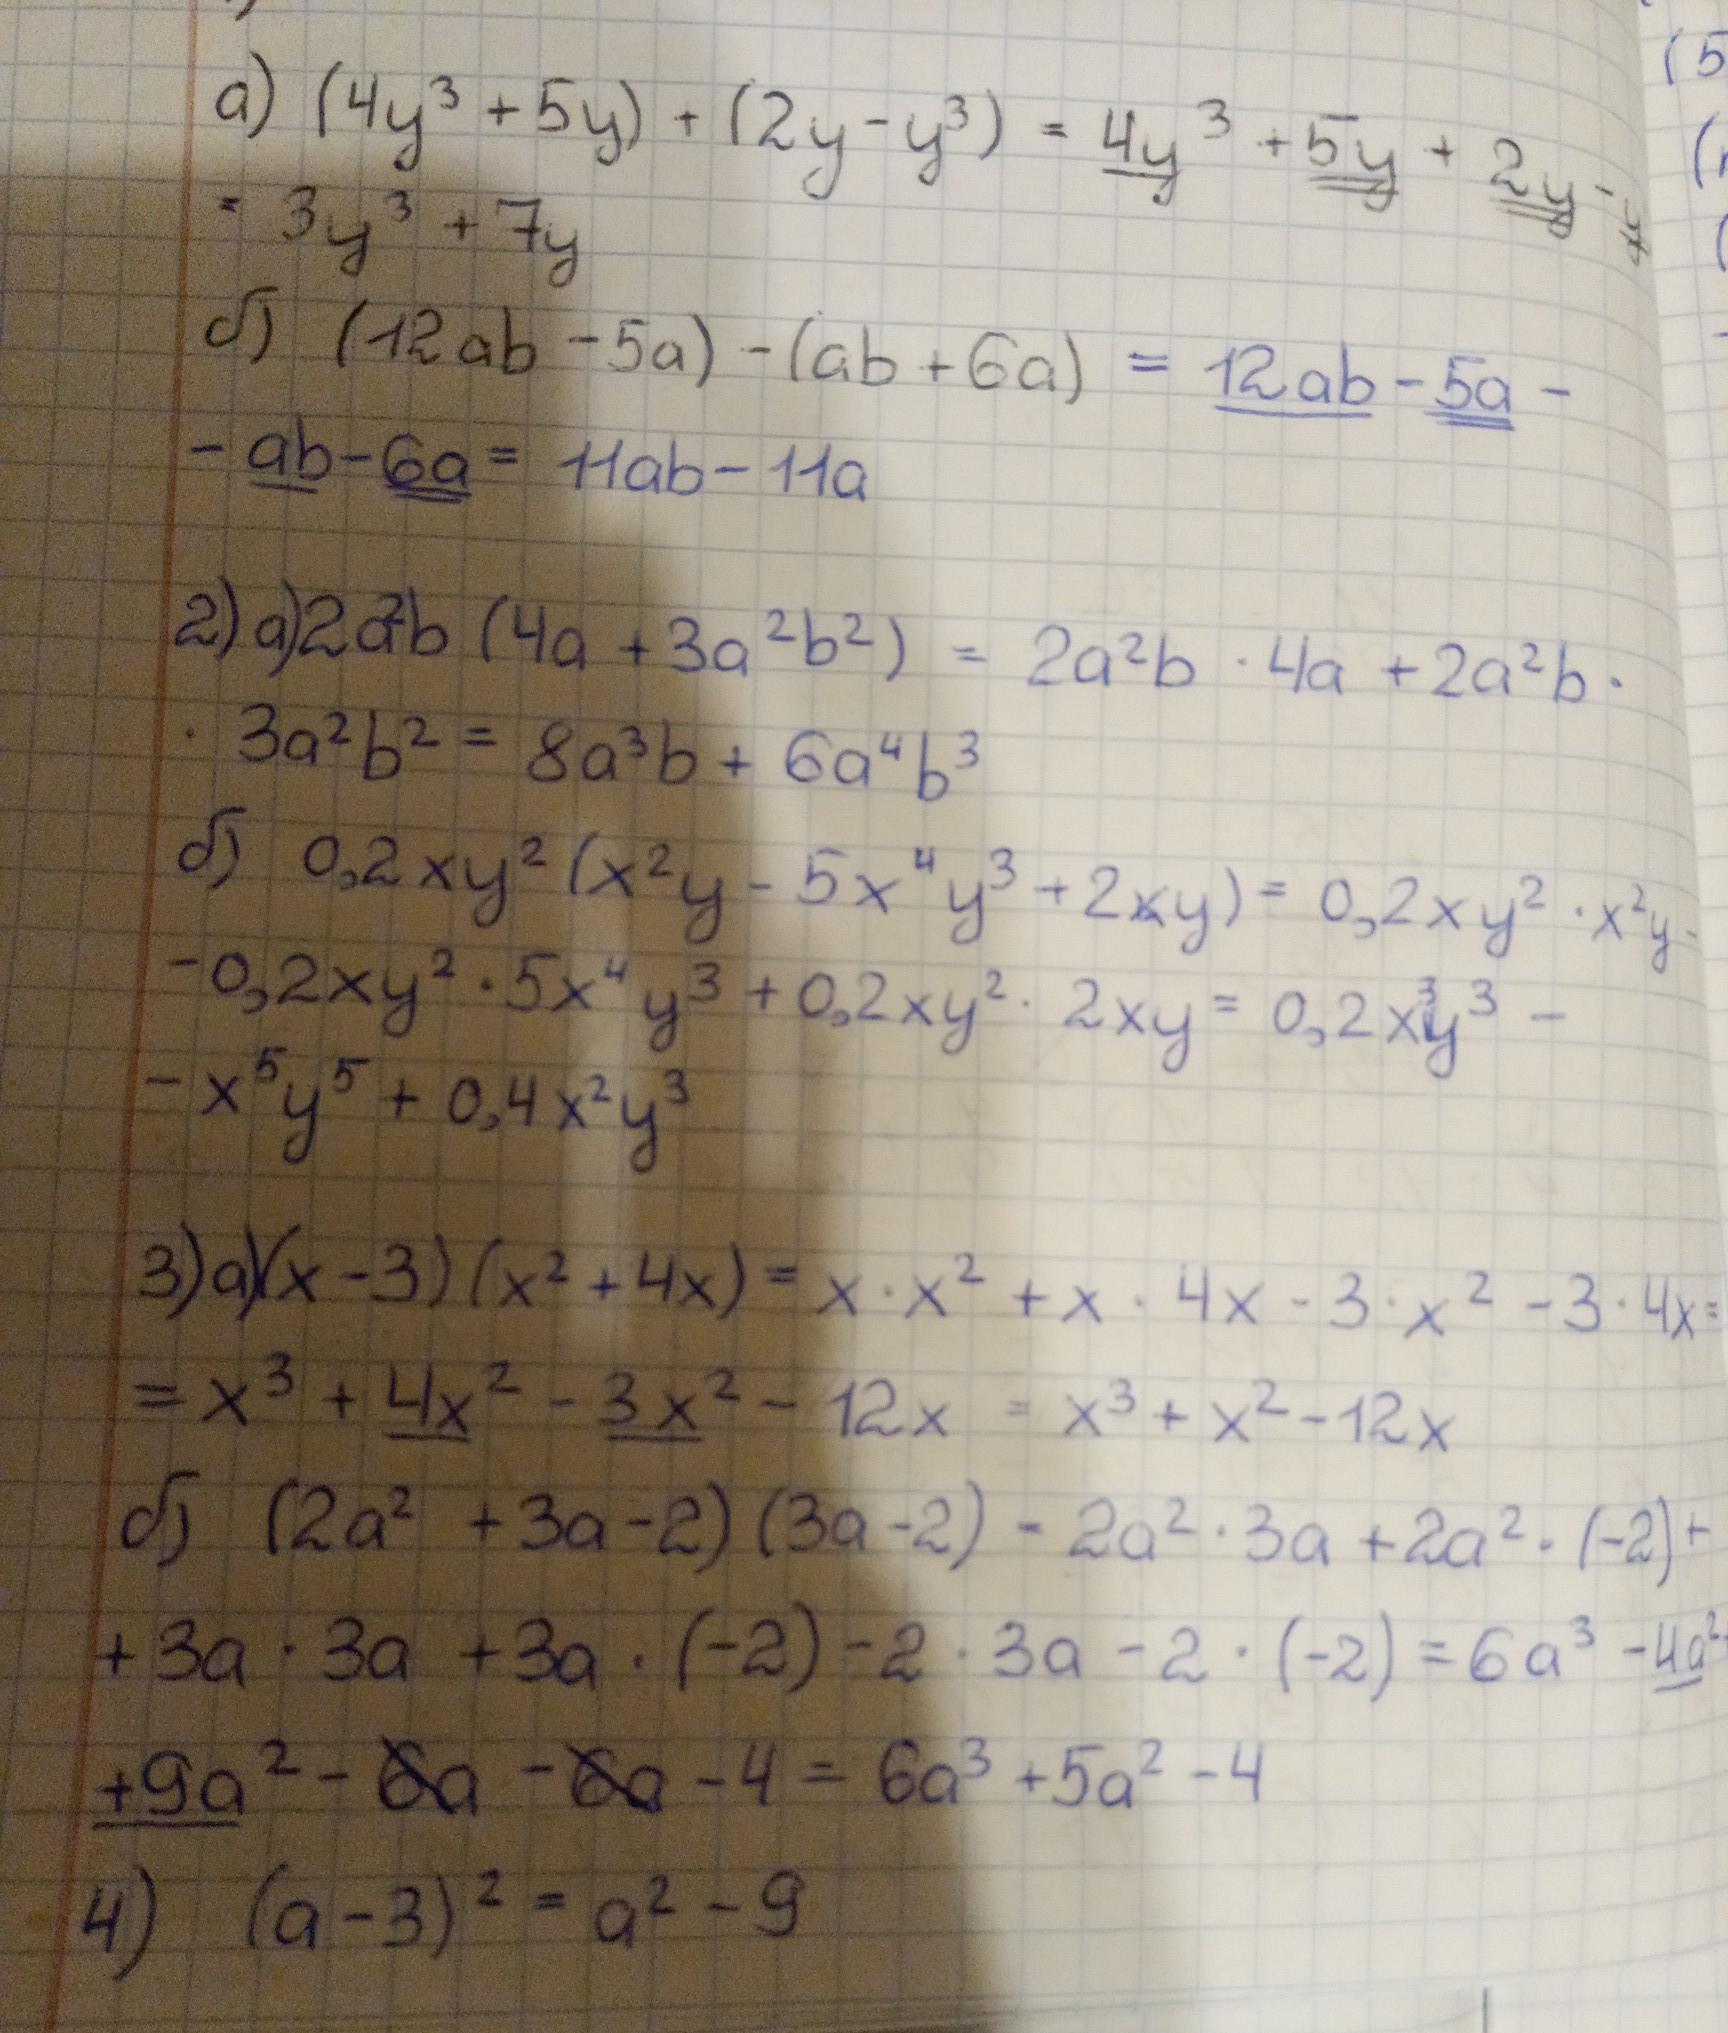 а) (4y³ + 5y) + (2y - y³) = 4y³ + 5y + 2y -
= 3y³ + 7y
б) (12ab - 5a) - (ab + 6a) = 12ab - 5a -
- ab - 6a = 11ab - 11a
2) а) 2a²b (4a + 3a²b²) = 2a²b · 4a + 2a²b ·
· 3a²b² = 8a³b + 6a⁴b³
б) 0,2xy² (x²y - 5x⁴y³ + 2xy) = 0,2xy² · x²y -
- 0,2xy² · 5x⁴y³ + 0,2xy² · 2xy = 0,2x³y³ -
- x⁵y⁵ + 0,4x²y³
3) а) (x - 3) (x² + 4x) = x · x² + x · 4x - 3 · x² - 3 · 4x =
= x³ + 4x² - 3x² - 12x = x³ + x² - 12x
б) (2a² + 3a - 2) (3a - 2) - 2a² · 3a + 2a² · (-2) +
+ 3a · 3a + 3a · (-2) - 2 · 3a - 2 · (-2) = 6a³ - 4a² +
+ 9a² - 6a - 6a - 4 = 6a³ + 5a² - 4
4) (a - 3)² = a² - 9
(5
(
(